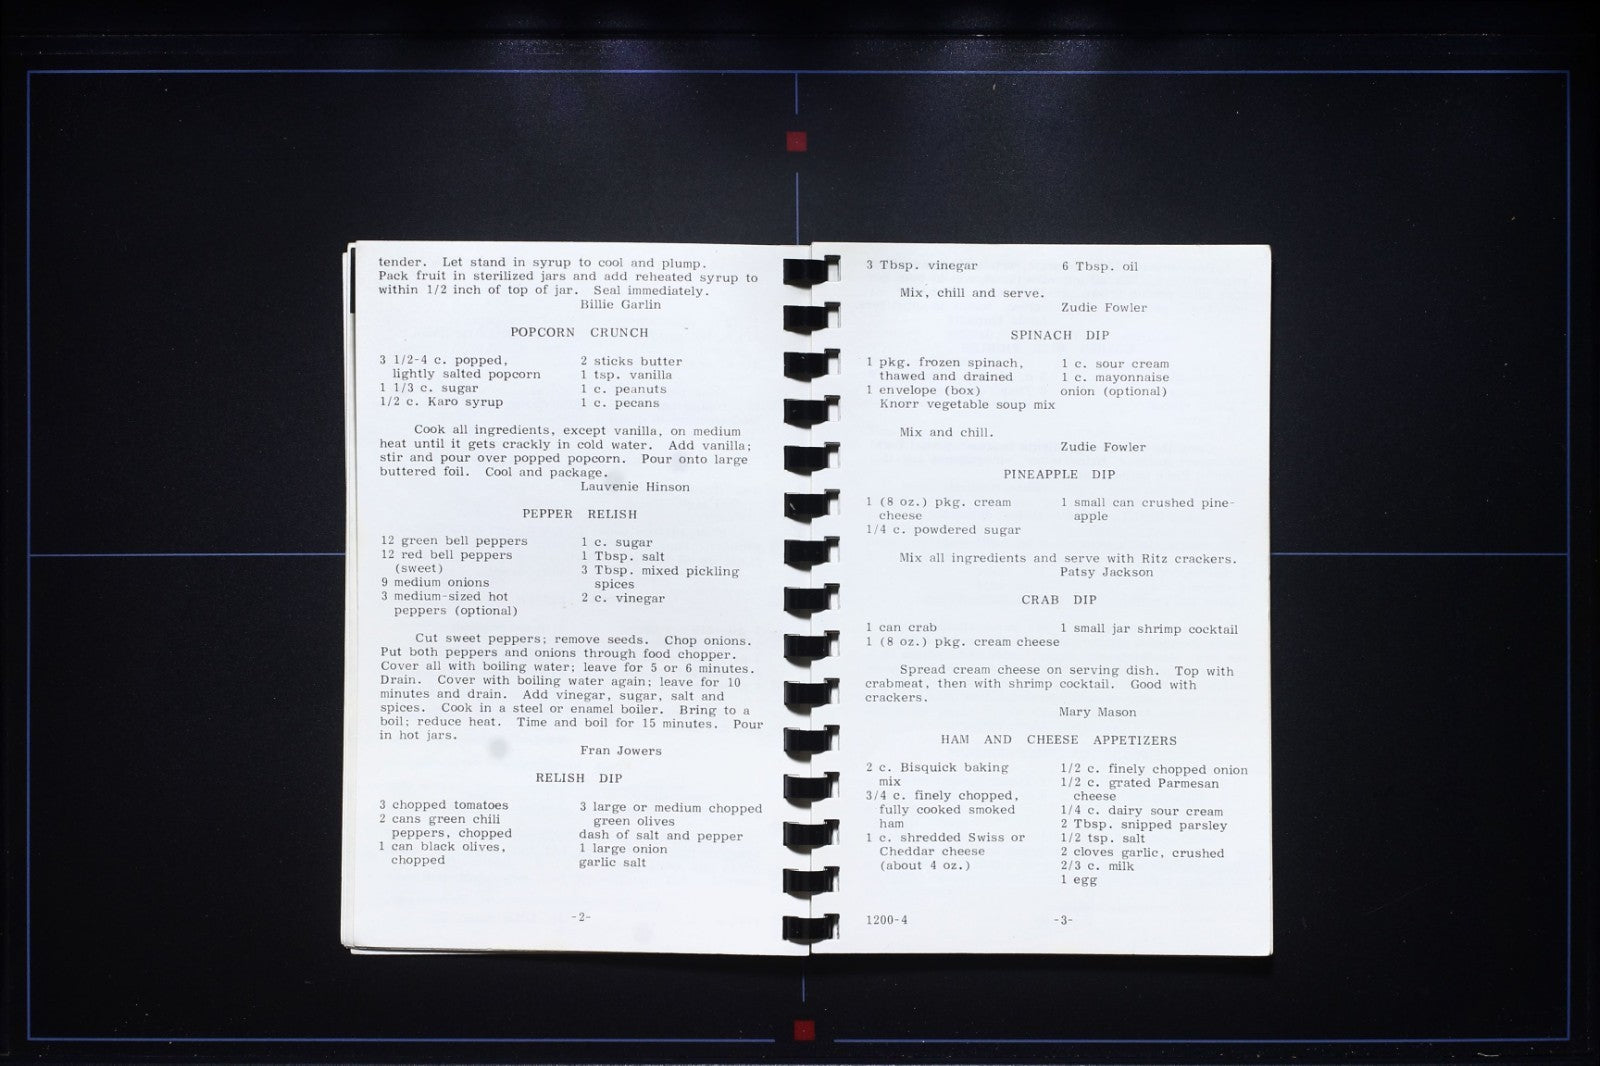 tender. Let stand in syrup to cool and plump.
Pack fruit in sterilized jars and add reheated syrup to
within 1/2 inch of top of jar. Seal immediately.
Billie Garlin
POPCORN CRUNCH
3 1/2-4 c. popped,
lightly salted popcorn
1 1/3 c. sugar
1/2 c. Karo syrup
2 sticks butter
1 tsp. vanilla
1 c. peanuts
1 c. pecans
Cook all ingredients, except vanilla, on medium
heat until it gets crackly in cold water. Add vanilla;
stir and pour over popped popcorn. Pour onto large
buttered foil. Cool and package.
Lauvenie Hinson
PEPPER RELISH
12 green bell peppers
12 red bell peppers
(sweet)
9 medium onions
3 medium-sized hot
peppers (optional)
1 c. sugar
1 Tbsp. salt
3 Tbsp. mixed pickling
spices
2 c. vinegar
Cut sweet peppers; remove seeds. Chop onions.
Put both peppers and onions through food chopper.
Cover all with boiling water; leave for 5 or 6 minutes.
Drain. Cover with boiling water again; leave for 10
minutes and drain. Add vinegar, sugar, salt and
spices. Cook in a steel or enamel boiler. Bring to a
boil; reduce heat. Time and boil for 15 minutes. Pour
in hot jars.
Fran Jowers
RELISH DIP
3 chopped tomatoes
2 cans green chili
peppers, chopped
1 can black olives,
chopped
3 large or medium chopped
green olives
dash of salt and pepper
1 large onion
garlic salt
-2-
3 Tbsp. vinegar
6 Tbsp. oil
Mix, chill and serve.
Zudie Fowler
SPINACH DIP
1 pkg. frozen spinach,
thawed and drained
1 envelope (box)
Knorr vegetable soup mix
1 c. sour cream
1 c. mayonnaise
onion (optional)
Mix and chill.
Zudie Fowler
PINEAPPLE DIP
1 (8 oz.) pkg. cream
cheese
1/4 c. powdered sugar
1 small can crushed pine-
apple
Mix all ingredients and serve with Ritz crackers.
Patsy Jackson
CRAB DIP
1 can crab
1 (8 oz.) pkg. cream cheese
1 small jar shrimp cocktail
Spread cream cheese on serving dish. Top with
crabmeat, then with shrimp cocktail. Good with
crackers.
Mary Mason
HAM AND CHEESE APPETIZERS
2 c. Bisquick baking
mix
3/4 c. finely chopped,
fully cooked smoked
ham
1 c. shredded Swiss or
Cheddar cheese
(about 4 oz.)
1/2 c. finely chopped onion
1/2 c. grated Parmesan
cheese
1/4 c. dairy sour cream
2 Tbsp. snipped parsley
1/2 tsp. salt
2 cloves garlic, crushed
2/3 c. milk
1 egg
1200-4
-3-